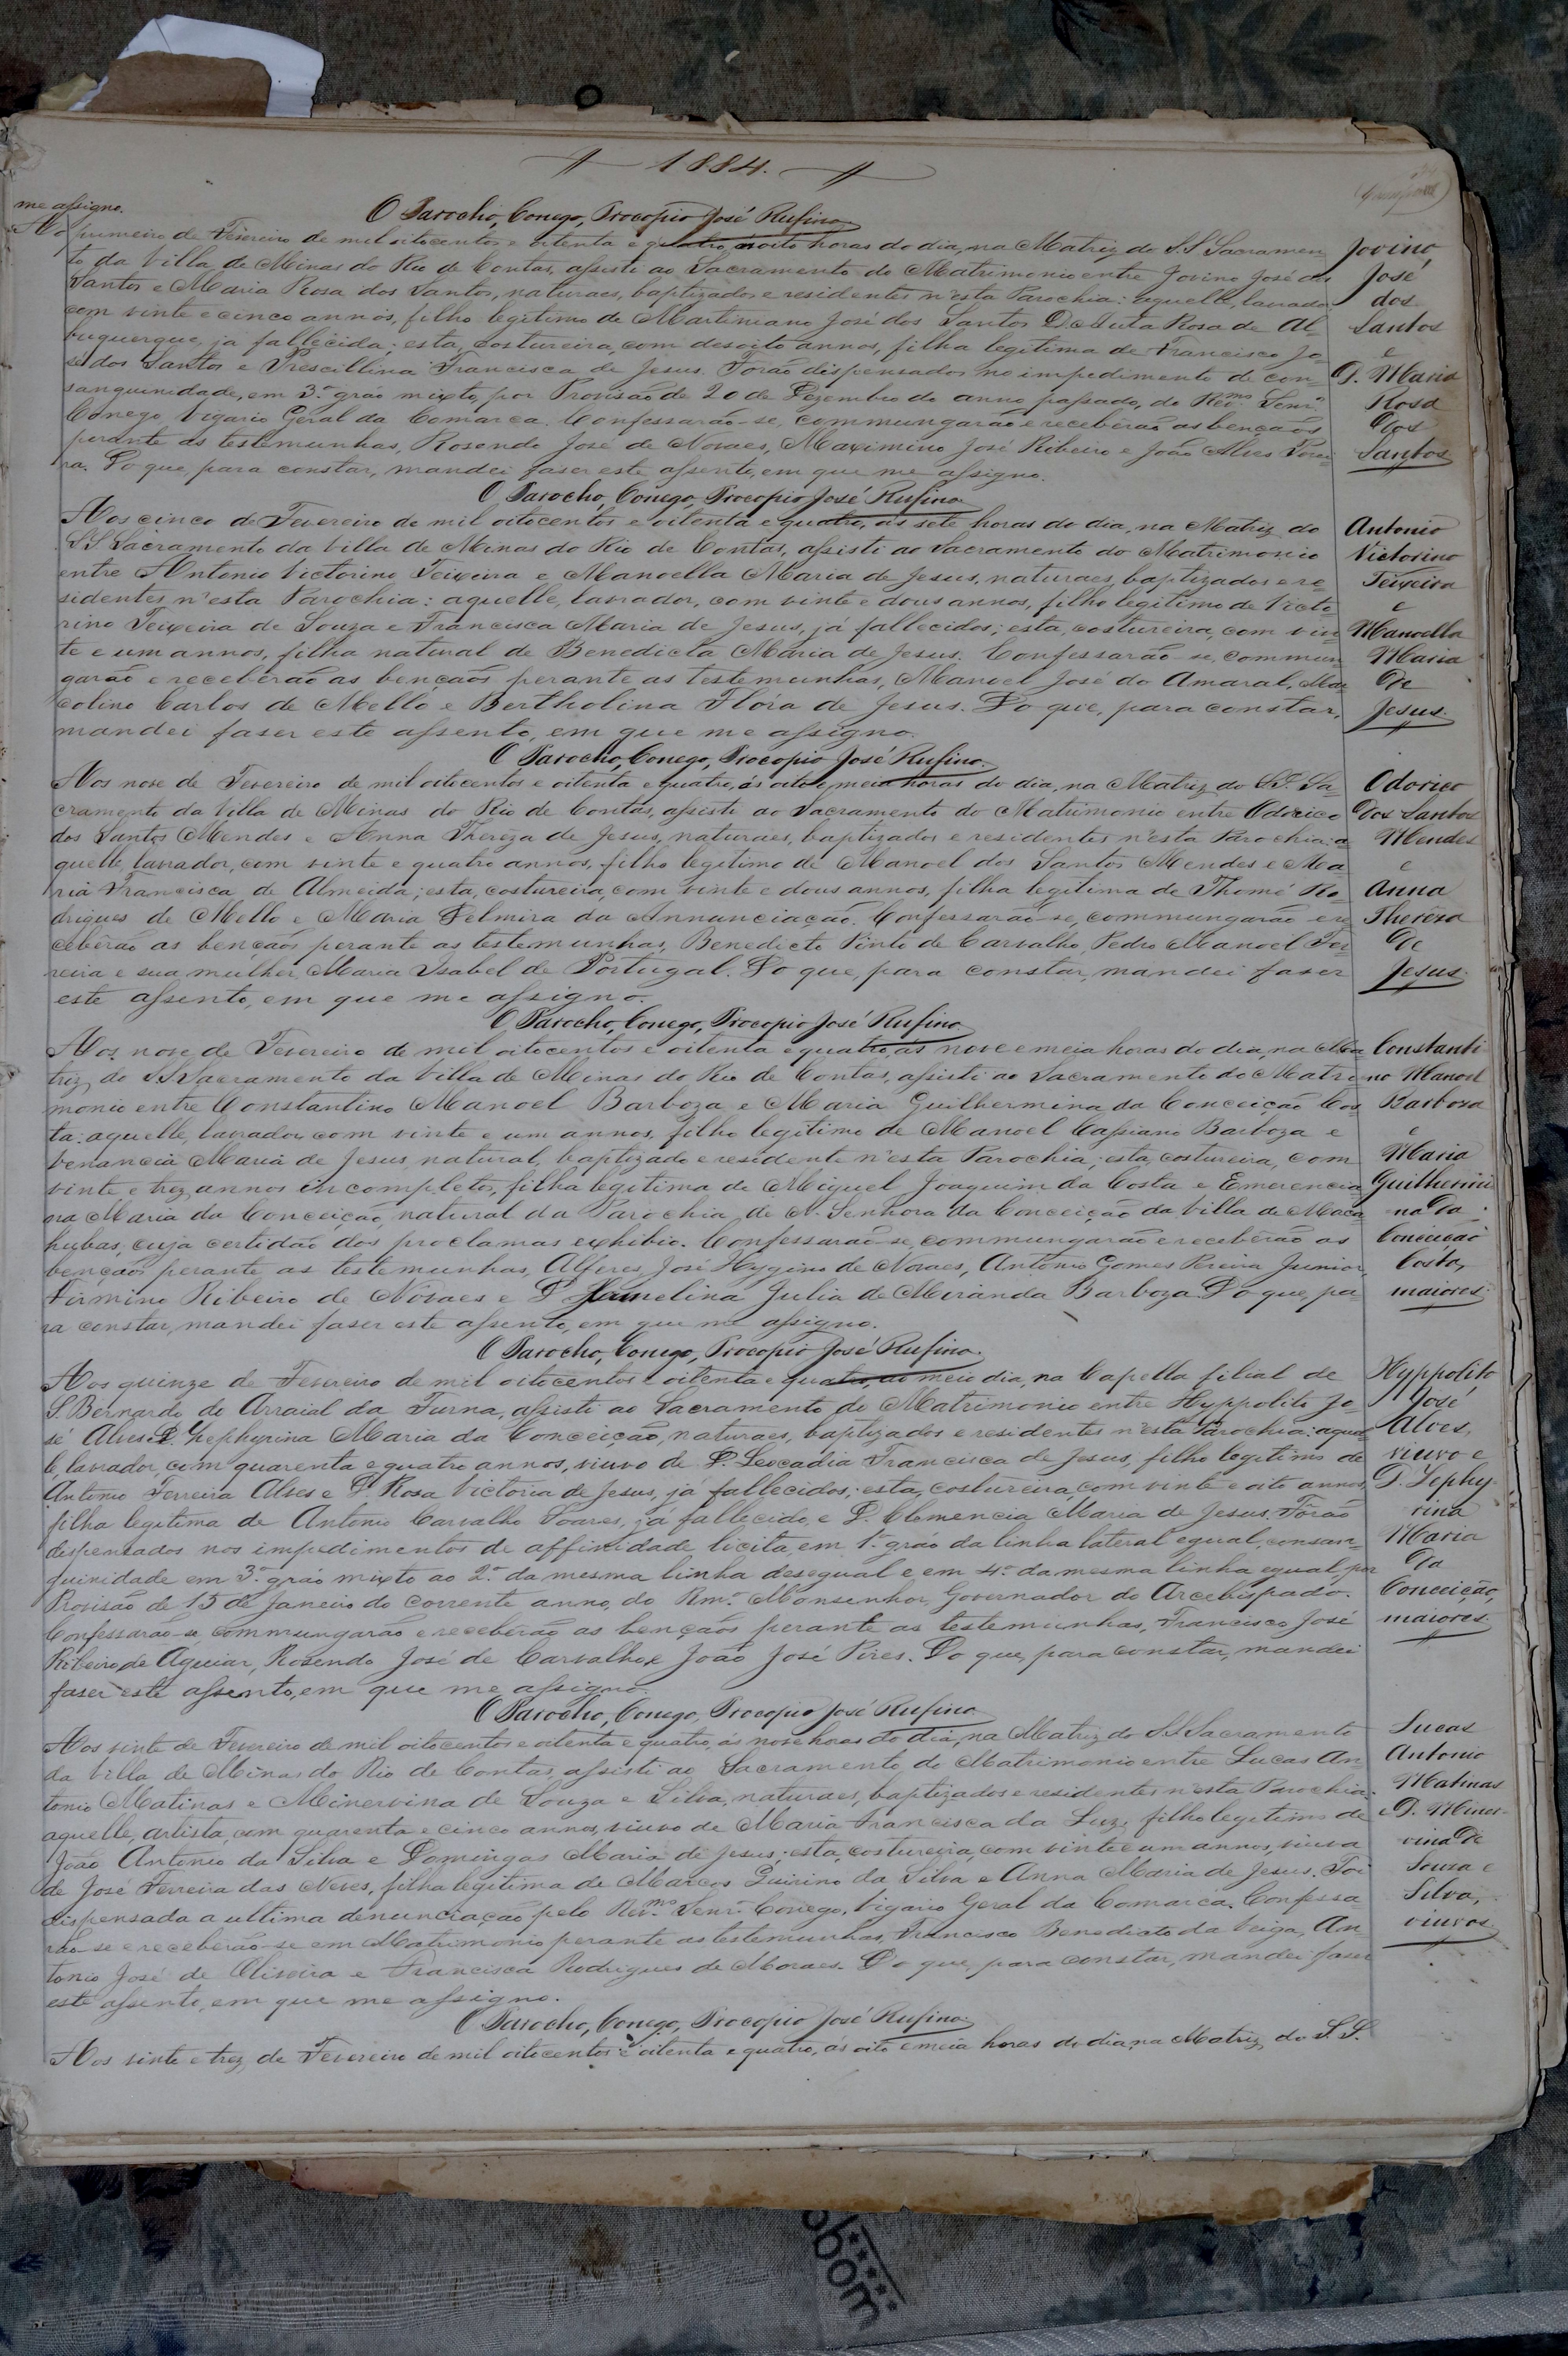 1884.
me assigno.
O Parocho, Conego, Procopio José Rufino
Ao primeiro de Fevereiro de mil oitocentos e oitenta e quatro, as oito horas do dia, na Matriz do S S Sacramen
to da Villa de Minas do Rio de Contas, assisti ao Sacramento do Matrimonio entre Jovino José dos
Santos e Maria Rosa dos Santos, naturaes, baptizados e residentes n'esta Parochia: aquelle, lavrador
com vinte e cinco annos, filho legitimo de Martiniano José dos Santos e Rosa de Al
buquerque, já fallecida; esta, costureira, com desoito annos, filha legitima de Francisco Jo
sé dos Santos e Prescillina Francisca de Jesus. Forão dispensados no impedimento de con
sanguinidade, em 3.º gráo mixto, por Provisão de 20 de Dezembro do anno passado, do Rev.mo Senr.
Conego Vigario Geral da Comarca. Confessarão-se, commungarão e receberão as bençãos
perante as testemunhas, Rosendo José de Novaes, Maximino José Ribeiro e João Alves Perei
ra. Do que, para constar, mandei faser este assento, em que me assigno.
O Parocho, Conego, Procopio José Rufino
Jovino
José
dos
Santos
e
D. Maria
Rosa
dos
Santos
Aos cinco de Fevereiro de mil oitocentos e oitenta e quatro, as sete horas do dia, na Matriz do
S S Sacramento da Villa de Minas do Rio de Contas, assisti ao Sacramento do Matrimonio
entre Antonio Victorino Teixeira e Manoella Maria de Jesus, naturaes, baptizados e re
sidentes n'esta Parochia: aquelle, lavrador, com vinte e dous annos, filho legitimo de Victo
rino Teixeira de Souza e Francisca Maria de Jesus, já fallecidos; esta, costureira, com vin
te e um annos, filha natural de Benedicta Maria de Jesus. Confessarão-se, commun
garão e receberão as bençãos perante as testemunhas, Manoel José do Amaral, Mar
colino Carlos de Mello e Bertholina Flóra de Jesus. Do que, para constar,
mandei faser este assento, em que me assigno.
O Parocho, Conego, Procopio José Rufino.
Antonio
Victorino
Teixeira
e
Manoella
Maria
de
Jesus.
Aos nove de Fevereiro de mil oitocentos e oitenta e quatro, ás oito e meia horas do dia, na Matriz do S.S. Sa-
cramento da Villa de Minas do Rio de Contas, assisti ao Sacramento do Matrimonio entre Odorico
dos Santos Mendes e Anna Thereza de Jesus, naturaes, baptizados e residentes n'esta Parochia: a
quelle, lavrador, com vinte e quatro annos, filho legitimo de Manoel dos Santos Mendes e Ma
ria Francisca de Almeida; esta, costureira, com vinte e dous annos, filha legitima de Thomé Ro-
drigues de Mello e Maria Delmira da Annunciação. Confessarão-se, commungarão e re
ceberão as bençãos perante as testemunhas, Benedicto Pinto de Carvalho, Pedro Manoel Fer
reira e sua mulher, Maria Isabel de Portugal. Do que, para constar, mandei faser
este assento, em que me assigno.
O Parocho, Conego, Procopio José Rufino
Odorico
dos Santos
Mendes
e
Anna
Theresa
de
Jesus.
Aos nove de Fevereiro de mil oitocentos e oitenta e quatro, ás nove e meia horas do dia, na Ma
triz do S S Sacramento da Villa de Minas do Rio de Contas, assisti ao Sacramento do Matri
monio entre Constantino Manoel Barboza e Maria Guilhermina da Conceição Cos
ta: aquelle, lavrador, com vinte e um annos, filho legitimo de Manoel Cassiano Barboza e
Venancia Maria de Jesus, natural, baptizado e residente n'esta Parochia; esta, costureira, com
vinte e trez annos incompletos, filha legitima de Miguel Joaquim da Costa e Emerencia
na Maria da Conceição, natural da Parochia de N. Senhora da Conceição da Villa de Maca
hubas, cuja certidão dos proclamas exhibio. Confessarão-se, commungarão e receberão as
bençãos perante as testemunhas, Alferes José Hygino de Novaes, Antonio Gomes Pereira Junior,
Firmino Ribeiro de Novaes e D. Julia de Miranda Barboza. Do que, pa-
ra constar, mandei faser este assento, em que me assigno.
O Parocho, Conego, Procopio José Rufino.
Constanti
no Manoel
Barbosa
e
Maria
Guilhermi
na da
Conceição
Costa,
maiores.
Aos quinze de Fevereiro de mil oitocentos e oitenta e quatro, ao meio dia, na Capella filial de
S. Bernardo do Arraial da Furna, assisti ao Sacramento do Matrimonio entre Hyppolito Jo-
sé Alves e D. Zephyrina Maria da Conceição, naturaes, baptizados e residentes n'esta Parochia: aquel
le, lavrador, com quarenta e quatro annos, viuvo de D. Leocadia Francisca de Jesus, filho legitimo de
Antonio Ferreira Alves e D. Rosa Victoria de Jesus, já fallecidos; esta, costureira, com vinte e oito annos,
filha legitima de Antonio Carvalho Soares, já fallecido, e D. Clemencia Maria de Jesus. Forão
dispensados nos impedimentos de affinidade licita, em 1.º gráo da linha lateral egual, consan-
guinidade em 3.º gráo mixto ao 2.º da mesma linha desegual e em 4.º da mesma linha egual, por
Provisão de 15 de Janeiro do corrente anno, do Rm.º Monsenhor, Governador do Arcebispado.
Confessarão-se, commungarão e receberão as bençãos perante as testemunhas, Francisco José
Ribeiro de Aguiar, Rosendo José de Carvalho e João José Pires. Do que, para constar, mandei
faser este assento, em que me assigno.
O Parocho, Conego, Procopio José Rufino
Hyppolito
José
Alves,
viuvo e
D. Zephy-
rina
Maria
da
Conceição,
maiores.
Aos vinte de Fevereiro de mil oitocentos e oitenta e quatro, ás nove horas do dia, na Matriz do S S Sacramento
da Villa de Minas do Rio de Contas, assisti ao Sacramento do Matrimonio entre Lucas An-
tonio Matinas e Minervina de Souza e Silva, naturaes, baptizados e residentes n'esta Parochia:
aquelle, artista, com quarenta e cinco annos, viuvo de Maria Francisca da Luz, filho legitimo de
João Antonio da Silva e Domingas Maria de Jesus; esta, costureira, com vinte e um annos, viuva
de José Ferreira das Neves, filha legitima de Marcos Quirino da Silva e Anna Maria de Jesus. Foi
dispensada a ultima denunciação pelo Rev.mo Senr. Conego, Vigario Geral da Comarca. Confessa
rão-se e receberão-se em Matrimonio perante as testemunhas, Francisco Benedicto da Veiga, An-
tonio José de Oliveira e Francisca Rodrigues de Moraes. Do que, para constar, mandei faser
este assento, em que me assigno.
O Parocho, Conego, Procopio José Rufino.
Lucas
Antonio
Matinas
e D. Miner-
vina de
Souza e
Silva,
viuvos
Aos vinte e trez de Fevereiro de mil oitocentos e oitenta e quatro, ás oito e meia horas do dia, na Matriz do S.S.